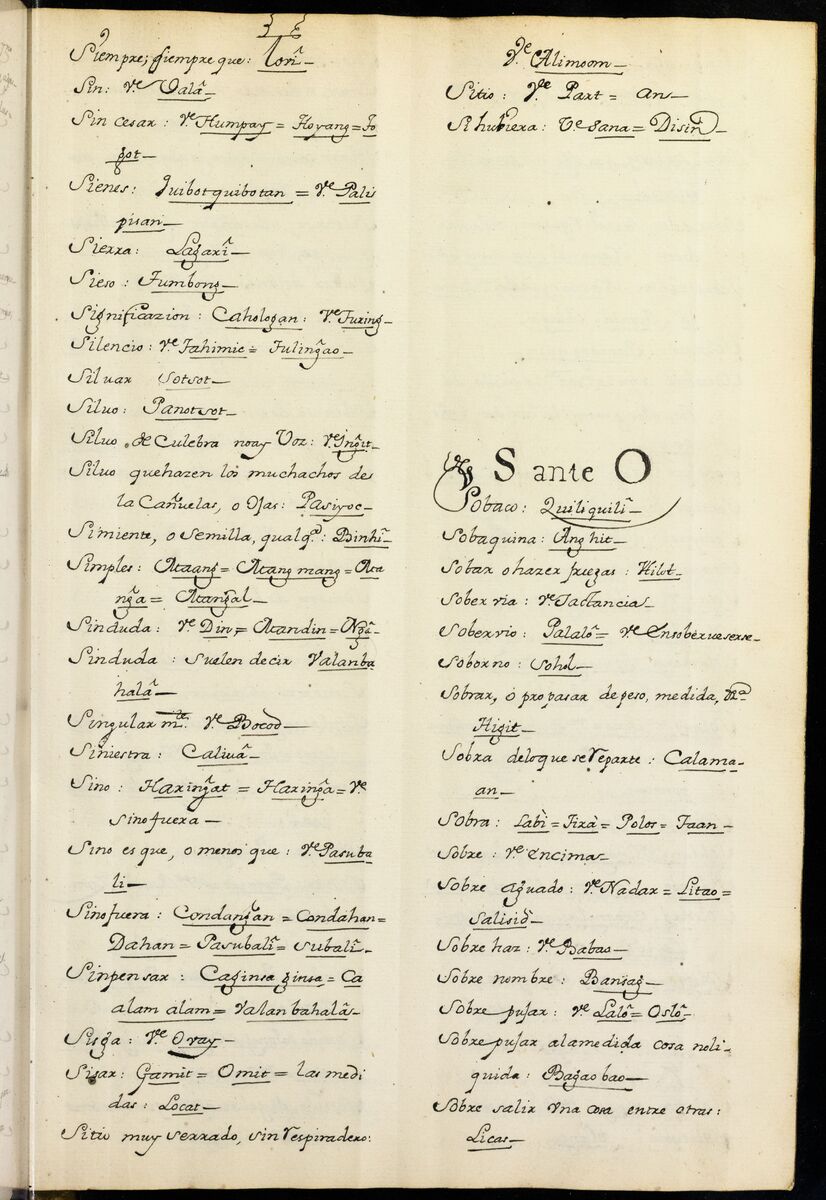 Siempre; siempre que: Tovi᷃
Sin: Ve. Vala᷃
Sin cesar: Ve. Humpay = Hoyang = To
got
Sienes: Quibotquibotan = Ve. Palis
pisan
Sierra: Lagari᷃
Sieso: Tumbong
Significazion: Cahologan: Ve. Turing
Silencio: Ve. Tahimic = Tuling̃ao
Siluar Sotsot
Siluo: Panotsot
Siluo de Culebra no ay Voz: Ve. Ing̃it
Siluo que hazen los muchachos de
la Cañuelas, o Ojas: Pasiyoc
Simiente, o semilla, qualqa.: Binhi᷃
Simples: Ataang = Atang mang = Ata
ng̃a = Atang̃al
Sinduda: Ve. Din, = Atandin = Ng̃a
Sinduda: suelen decir Valanba
hala᷃
Singularmte. Ve. Bocod
Siniestra: Caliua᷃
Sino: Haring̃at = Haring̃a = Ve.
sinofuera
Sino es que, o menos que: Ve. Pasuba
li
Sinofuera: Condang̃an = Condahan =
Dahan = Pasubali᷃ = Subali᷃
Sinpensar: Caginsa ginsa = Ca
alam alam = Valanbahala᷃
Sisga: Ve. Ovay
Sisar: Gamit = Omit = las medi
das: Locat
Sitio muy serrado, sin Respiradero:
Ve. Alimoom
Sitio: Ve. Part = an
Si hubiera: Ve. sana = Disin
S ante O
Sobaco: Quiliquili᷃
Sobaquina: Anghit
Sobar o hazer friegas: Hilot
Sobervia: Ve. Jactancia
Sobervio: Palalo᷃ = Ve. Ensoberuecerse
Soborno: Sohol
Sobrar, o propasar de peso, medida, &a.
Higit
Sobra delo que se Reparte: Calama
an
Sobra: Labì = Tirà = Polos = Taan
Sobre: Ve. encima
Sobre aguado: Ve. Nadar = Litao =
Salisid
Sobre haz: Ve. Babao
Sobre nombre: Bansag
Sobre pujar: Ve. Lalo᷃ = Oslo᷃
Sobre pujar ala medida cosa no li
quida: Bagao bao
Sobre salir Vna cosa entre otras:
Licas